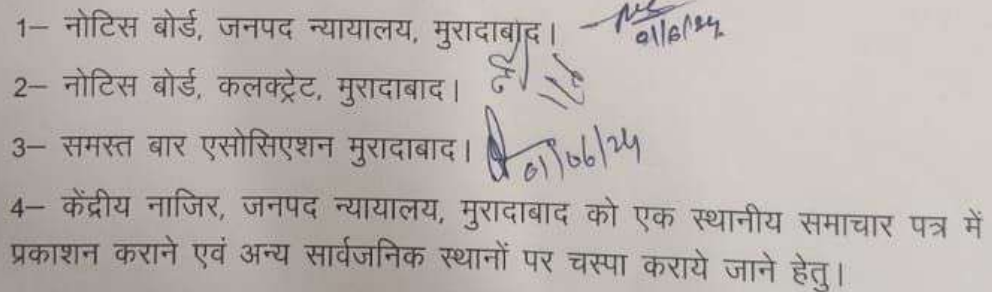 1– नोटिस बोर्ड, जनपद न्यायालय, मुरादाबाद।
01/6/24
2– नोटिस बोर्ड, कलक्ट्रेट, मुरादाबाद।
3– समस्त बार एसोसिएशन मुरादाबाद।
01/06/24
4– केंद्रीय नाजिर, जनपद न्यायालय, मुरादाबाद को एक स्थानीय समाचार पत्र में
प्रकाशन कराने एवं अन्य सार्वजनिक स्थानों पर चस्पा कराये जाने हेतु।